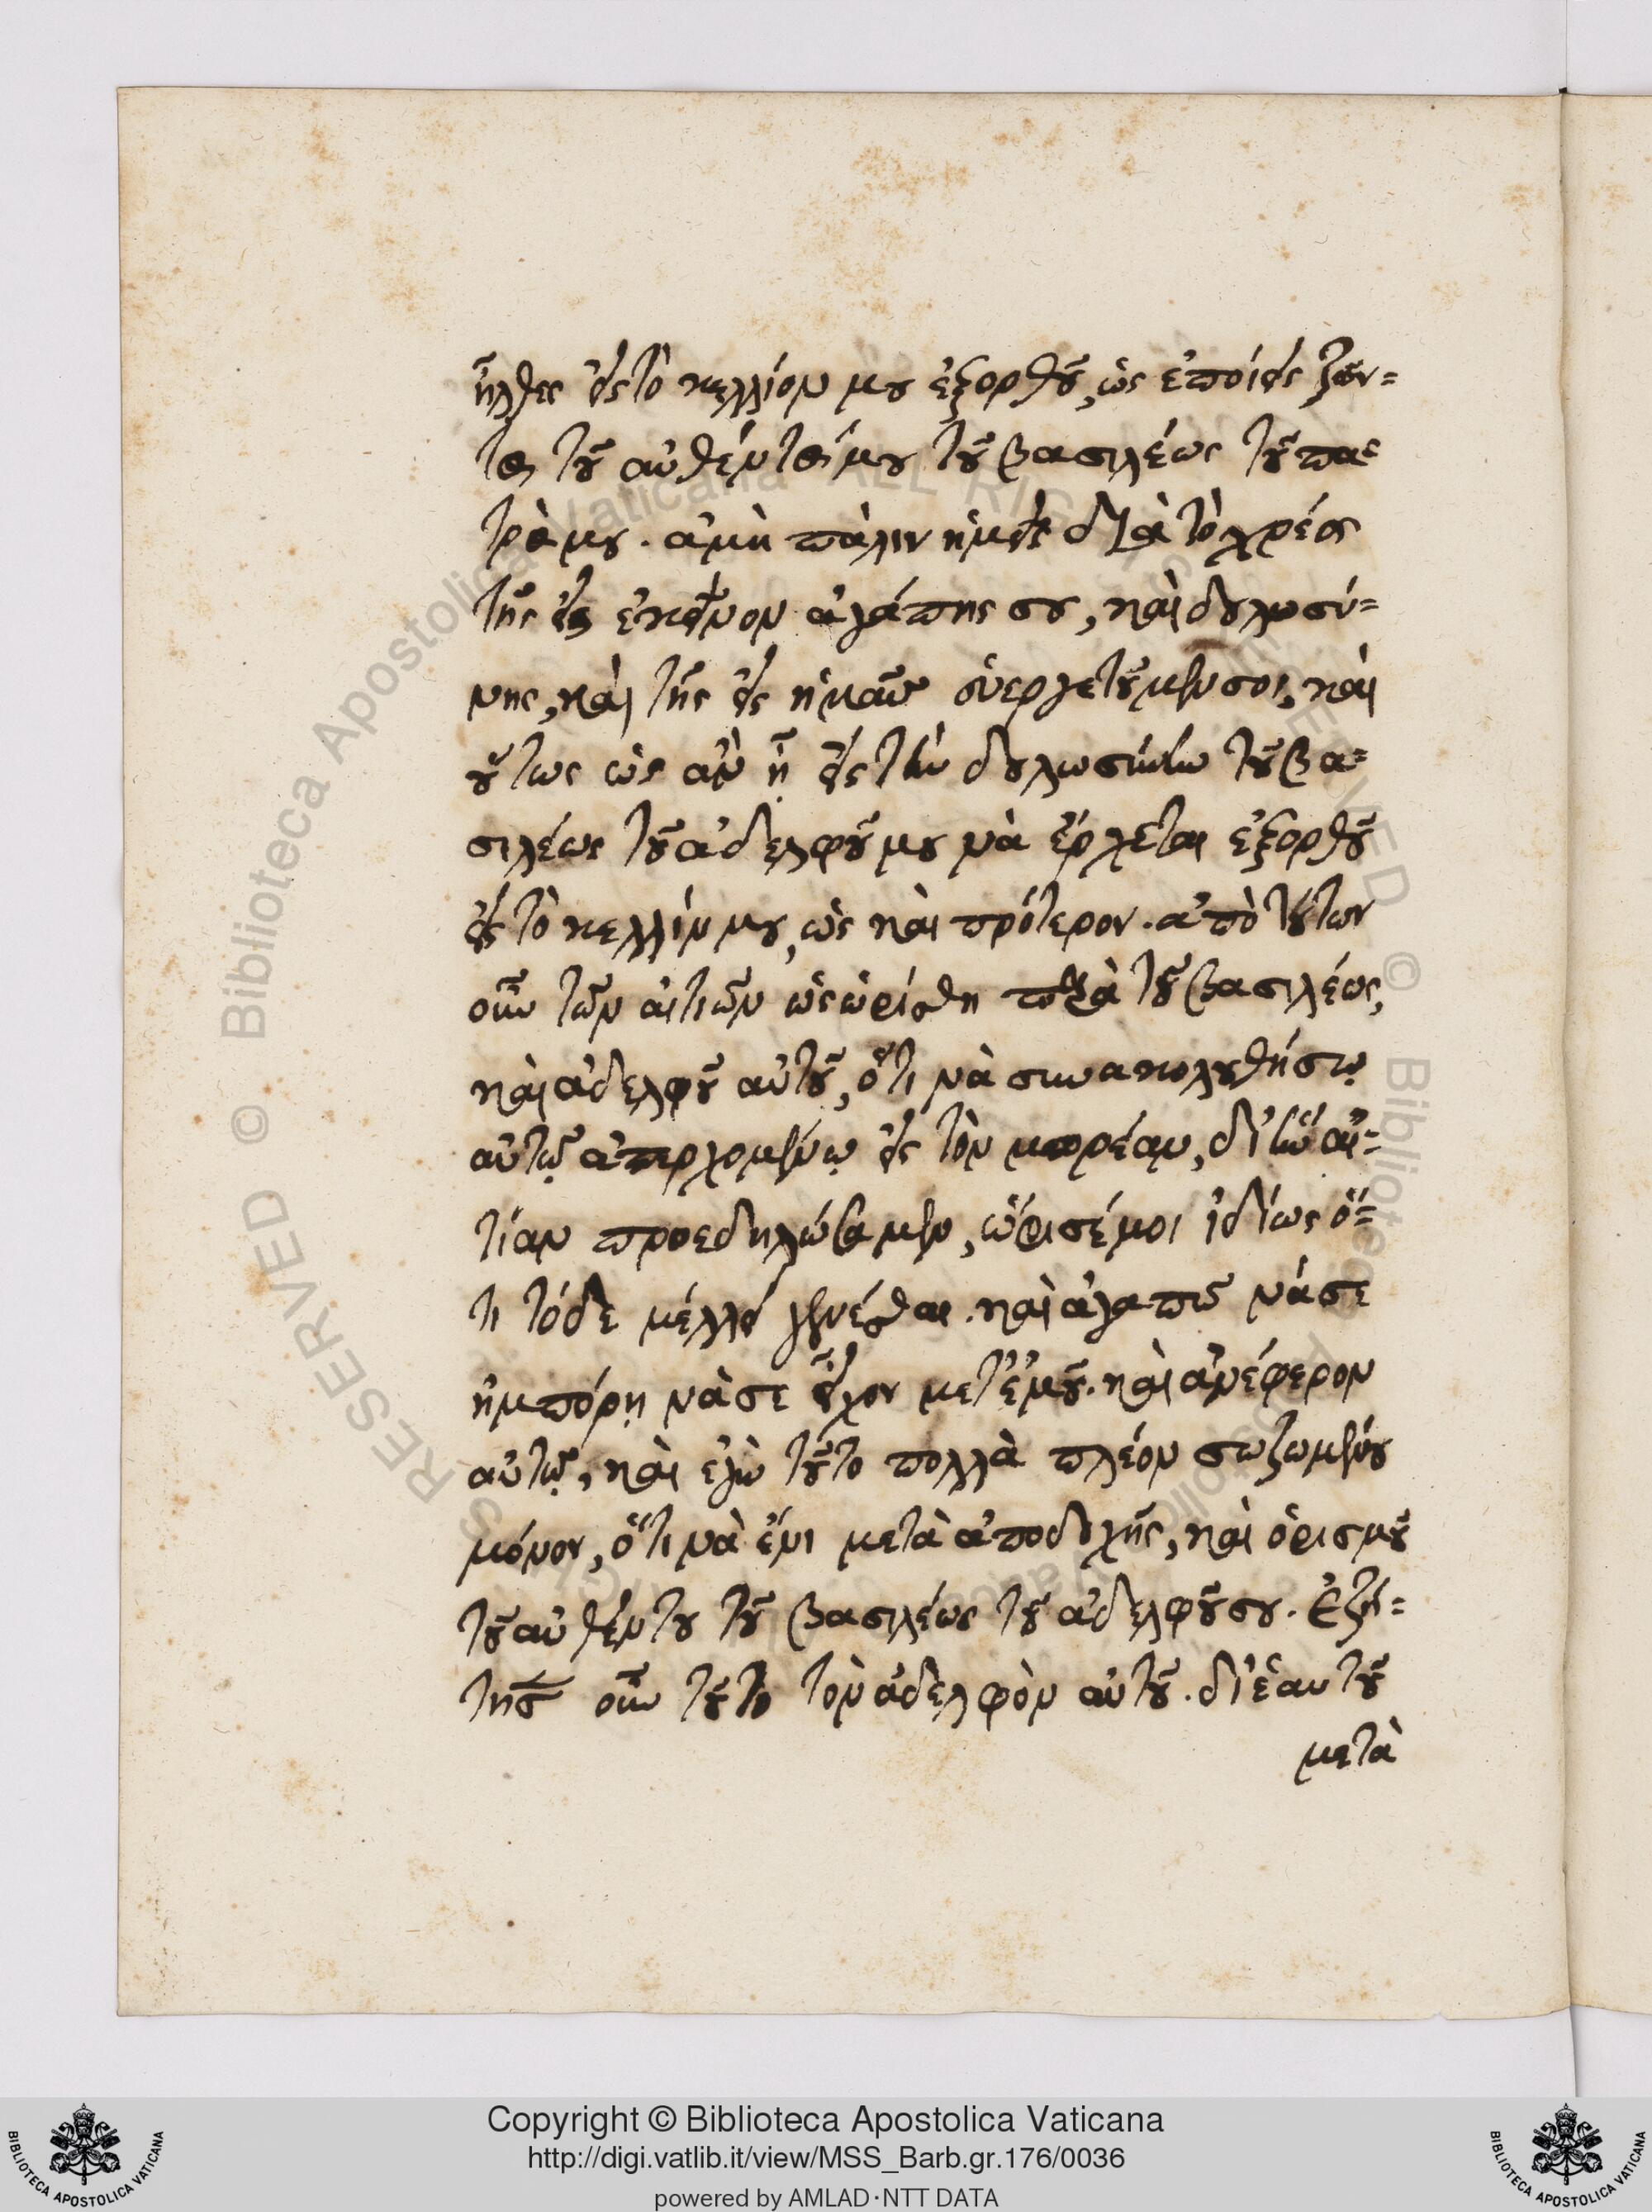 ἦλθες εἰς τὸ κελλίον μου ἐξορθοῦ, ὡς ἐποίεις ζῶν-
τος τοῦ αὐθέντός μου τοῦ βασιλέως τοῦ πα-
τρός μου. ἀμὴ πάλιν ἡμεῖς διὰ τὸ χρέος
τῆς εἰς ἐκεῖνον ἀγάπης σου, καὶ δουλοσύ-
νης, καὶ τῆς εἰς ἡμᾶς εὐεργετοῦμέν σοι, καὶ
οὕτως ὡς ἂν ᾖ εἰς τὴν δουλωσύνην τοῦ βα-
σιλέως τοῦ ἀδελφοῦ μου νὰ ἔρχεται ἐξορθοῦ
εἰς τὸ κελλίν μου, ὡς καὶ πρότερον. ἀπὸ τούτων
οὖν τῶν αἰτιῶν ὡς ὡρίσθη παρὰ τοῦ βασιλέως,
καὶ ἀδελφοῦ αὐτοῦ, ὅτι νὰ συνακολουθήσω
αὐτῷ ἀπερχομένῳ εἰς τὸν μορέαν, δι' ἣν αἰ-
τίαν προεδηλώσαμεν, ὥρισέ μοι ἰδίως ὅ-
τι τόδε μέλλει γενέσθαι. καὶ ἀγαπῶ νά σε
ἠμπόρῃ νὰ σε εἶχον μετ' ἐμοῦ. καὶ ἀνέφερον
αὐτῷ, καὶ ἐγὼ τοῦτο πολλὰ πλέον σωζωμένου
μόνον, ὅτι νὰ ἔνι μετὰ ἀποδοχῆς, καὶ ὁρισμοῦ
τοῦ αὐθέντου τοῦ βασιλέως τοῦ ἀδελφοῦ σου. Ἐζή-
τησε οὖν τοῦτο τὸν ἀδελφὸν αὐτοῦ. δι' ἑαυτοῦ
μετὰ
Copyright © Biblioteca Apostolica Vaticana
http://digi.vatlib.it/view/MSS_Barb.gr.176/0036
powered by AMLAD·NTT DATA